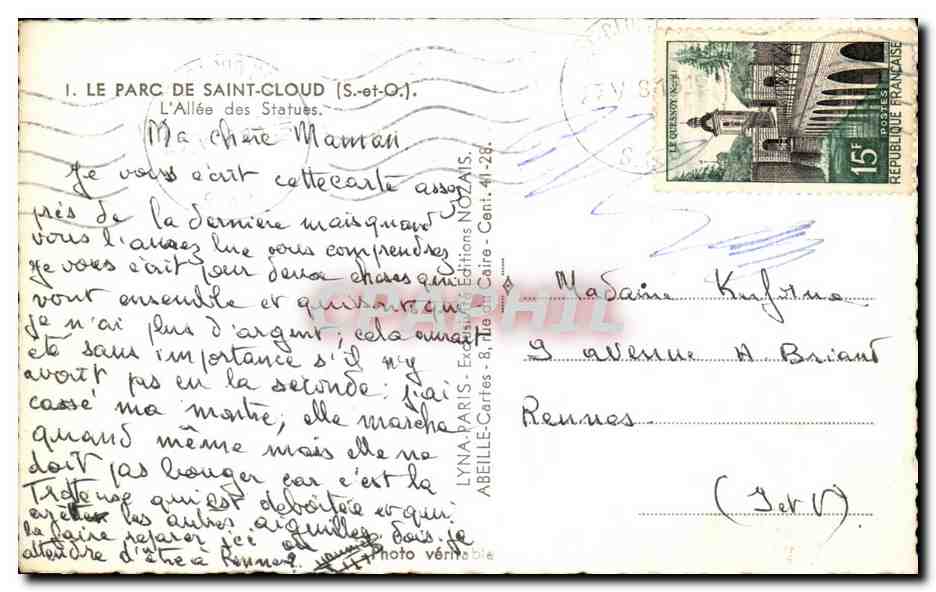 1. LE PARC DE SAINT-CLOUD (S.-et-O.).
L'Allée des Statues.
Ma chère Maman.
Je vous écrit cette carte assez
près de la dernière mais quand
vous l'aurez lue vous comprendrez
Je vous écrit pour deux choses qui
vont ensemble et qui sont que
je n'ai plus d'argent, cela aurait
été sans importance s'il n'y
avait pas eu la seconde : j'ai
cassé ma montre, elle marche
quand même mais elle ne
doit pas bouger car c'est la
Trotteuse qui est déboitée et qui
les autres aiguilles. Dois-je
la faire réparer ici ou
attendre d'être à Rennes?
LYNA-PARIS - Exclusivité Editions NOZAIS.
ABEILLE-Cartes - 8, rue du Caire - Cent. 41-28.
Photo véritable
CPAPHIL
LE QUESNOY (Nord)
15F
POSTES
REPUBLIQUE FRANÇAISE
Madame
9 avenue A. Briand
Rennes.
(I et V)